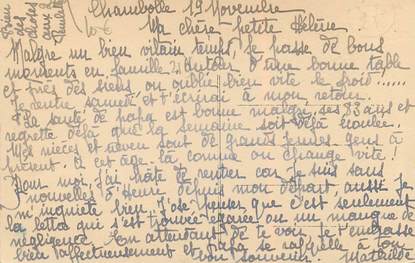 Chambolle 19 Novembre
Ma chère petite Hélène
Malgré un bien vilain temps, je passe de bons
moments en famille. Autour d'une bonne table
et près des siens on oublie bien vite le froid......
Je rentre samedi et t'écrirai à mon retour.
La santé de papa est bonne malgré ses 83 ans et
regrette déjà que la semaine soit déjà écoulée.
Mes nièces et neveu sont de grands jeunes gens à
présent. A cet âge-là, comme on change vite!
Pour moi, j'ai hâte de rentrer car je suis sans
nouvelles d' depuis mon départ, aussi je
m'inquiète bien. J'ose penser que c'est seulement
la lettre qui s'est trouvée égarée ou un manque de
négligence. En attendant de te voir, je t'embrasse
bien affectueusement et papa se rappelle à ton
bon souvenir. Mathilde
Bien
des
choses
aux